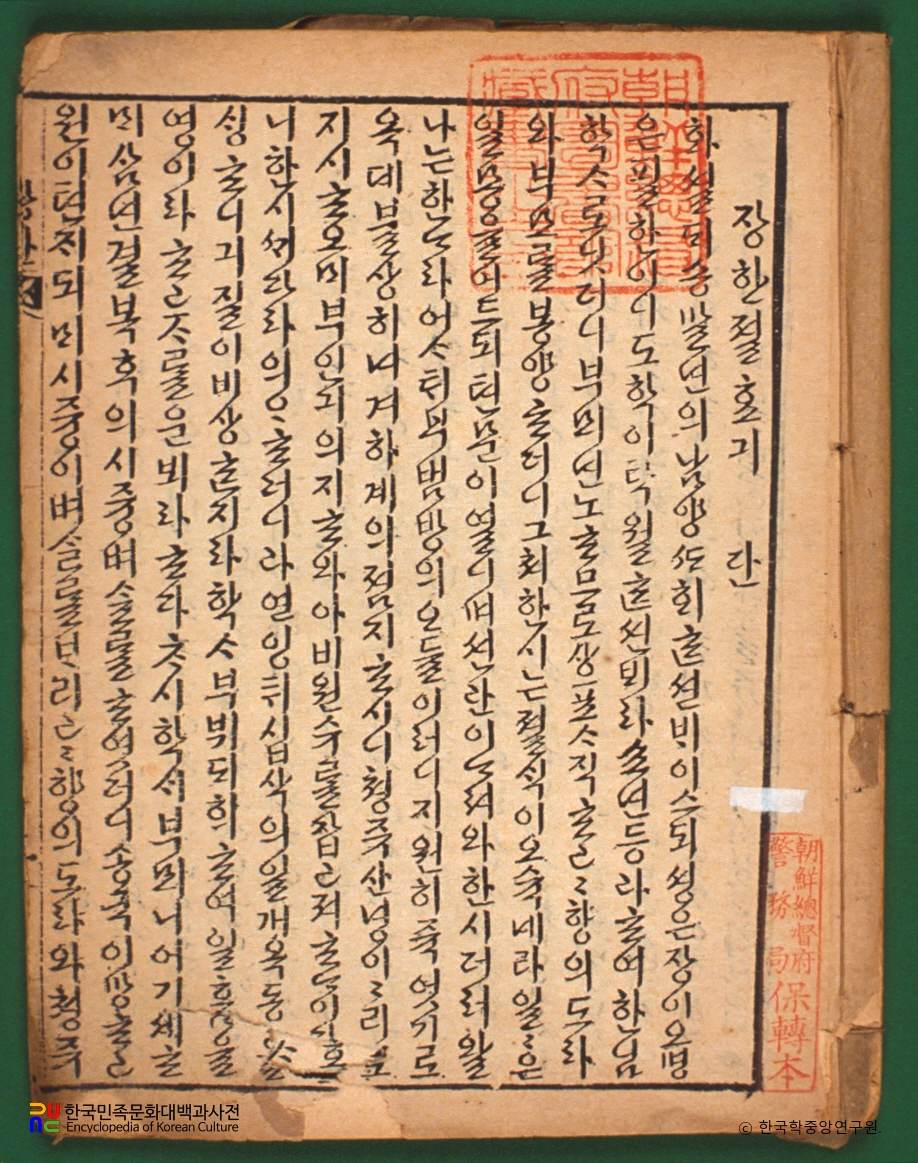 장한졀효기 단
화셜ᄃᆡ송말년의남양ᄯᅡ회ᄒᆞᆫ션ᄇᆡ이스되셩은장이오명
은필한이니도학이탁월ᄒᆞᆫ션ᄇᆡ라쇼년등과ᄒᆞ여한님
학ᄉᆞ로잇더니부뫼년노ᄒᆞ므로상표ᄉᆞ직ᄒᆞ고〻향의도라
와부모를봉양ᄒᆞ더니그쳐한시ᄂᆞᆫ졀식이오슉녜라일〻은
일몽을어드되텬문이열니며션관이ᄂᆞ려와한시더러왈
나ᄂᆞᆫ한ᄂᆞ라어ᄉᆞ틱우범방의오들이러니지원히쥭엇기로
옥뎨불상히너겨하계의졈지ᄒᆞ시니쳥쥭산녕이〻리로
지시ᄒᆞ오ᄆᆡ부인긔의지ᄒᆞ와아비원수를갑고져ᄒᆞᄂᆞ이
니한시ᄭᆡ다라의ᄋᆞᄒᆞ더니과연잉ᄐᆡ십삭의일개옥동을
싱ᄒᆞ니긔질이비상ᄒᆞᆫ지라학ᄉᆞ부뷔ᄃᆡ희ᄒᆞ여일홈을
영이라ᄒᆞ고ᄌᆞ를운뵈라ᄒᆞ다ᄎᆞ시학ᄉᆞ부뫼니어기셰ᄒᆞ
ᄆᆡ삼년결복후의시즁벼슬를ᄒᆞ엿더니송국이망ᄒᆞ고
원이텬지되ᄆᆡ시즁이벼슬를ᄇᆞ리고〻향의도라와쳥쥭
朝鮮總督府
警務局
保轉本
한국민족문화대백과사전
Encyclopedia of Korean Culture
© 한국학중앙연구원.